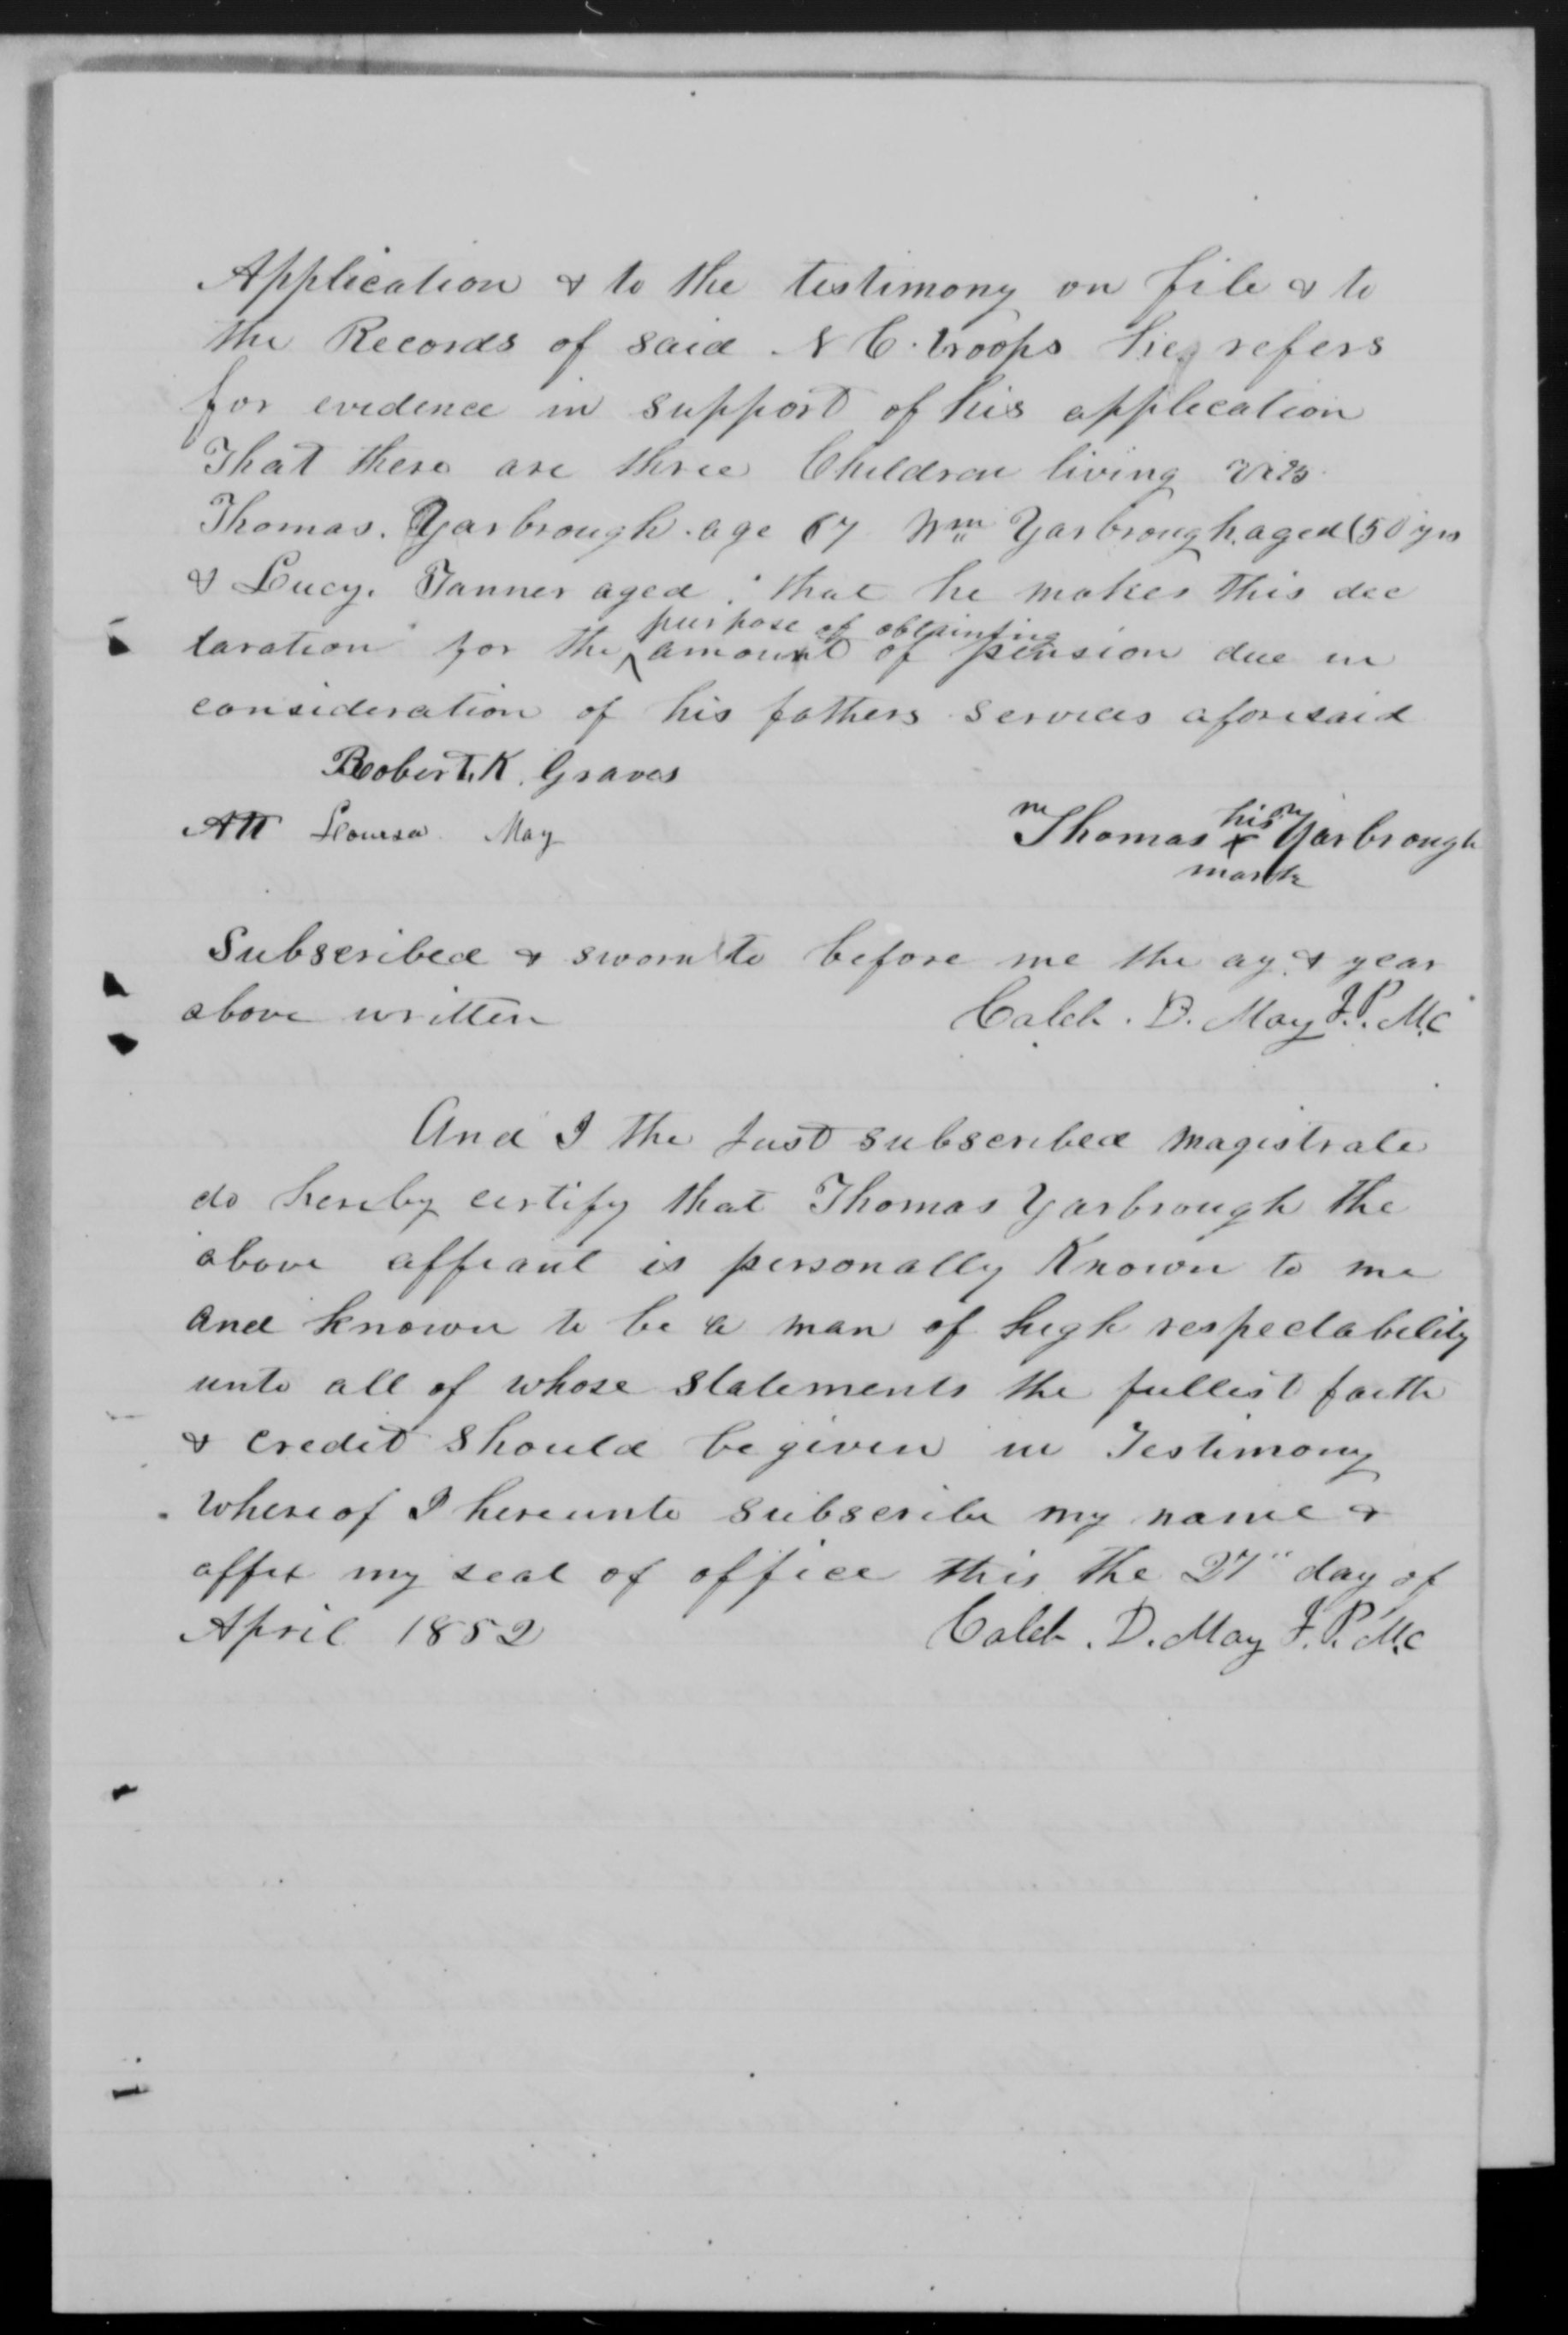 Application & to the testimony on file & to
the Records of said N C. troops he refers
for evidence in support of his application
That there are three Children living viz
Thomas. Yarbrough. age 67 Wm Yarbrough. aged 50 yrs
& Lucy. Tanner aged . that he makes this dec
laration for the purpose of obtainting amount of pension due in
consideration of his fathers services aforesaid
Robert. K. Graves
Att Louisa May
Thomas his x mark Yarbrough
Subscribed & sworn to before me the ay & year
above written Caleb. D. May J.P. M.C
And I the Just subscribed magistrate
do hereby certify that Thomas Yarbrough the
above affiant is personally Known to me
and known to be a man of high respectability
unto all of whose statements the fullest faith
& credit should be given in Testimony
whereof I hereunto subscribe my name &
affix my seal of office this the 27" day of
April 1852 Caleb. D. May J.P. M.C